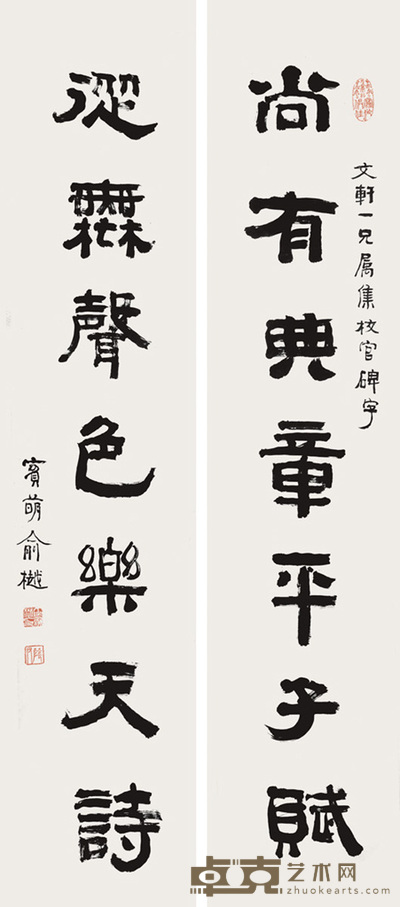 尚有典章平子賦
文軒一兄屬集校官碑字
從無聲色樂天詩
賓萌俞樾
卓克艺术网
zhuokearts.com